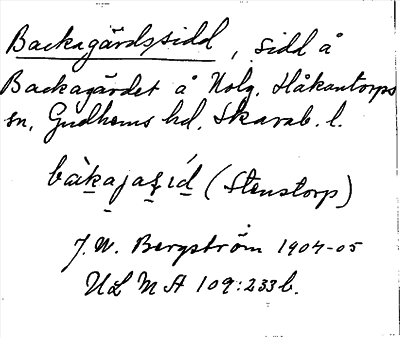 Backagärdssidd, sidd å
Backagärdet å Nolg. Håkantorps
sn, Gudhems hd. Skarab. l.
bàkajaʂíd (Stenstorp)
J. W. Bergström 1904-05
ULMA 109:233b.